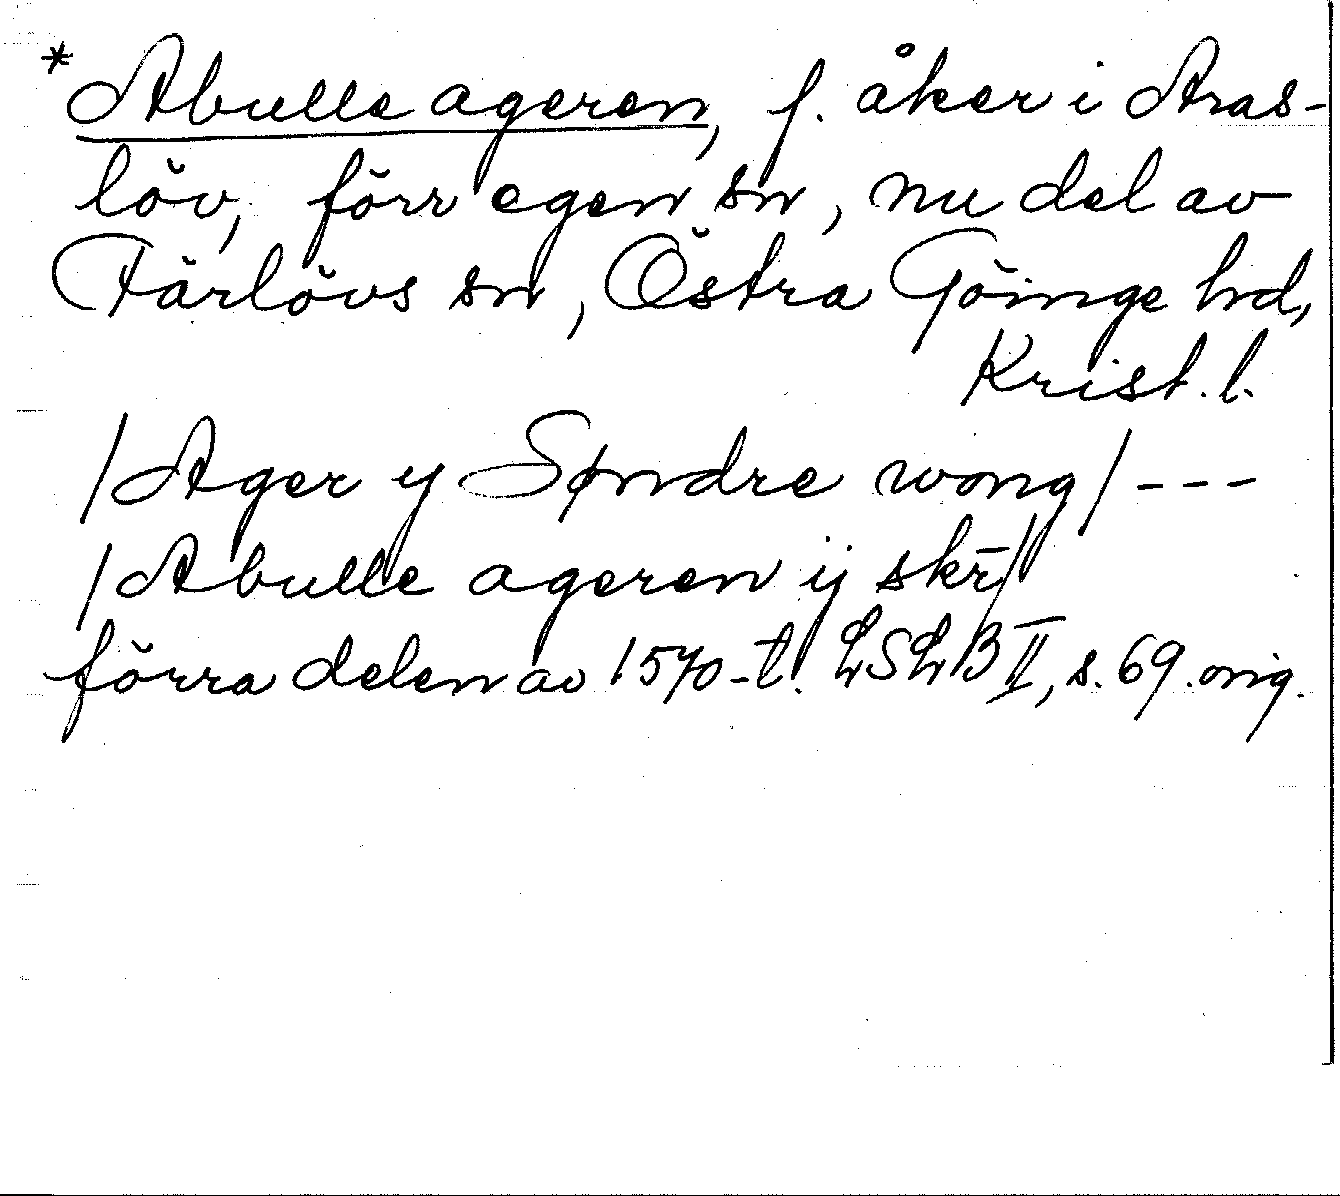 *Abulle ageren, f. åker i Aras-
löv, förr egen sn, nu del av
Färlövs sn, Östra Göinge hd,
Krist. l.
/Ager y Søndre wong/ ---
/Abulle ageren ij skr̄/
förra delen av 1570-t. LSLB II, s. 69. orig.